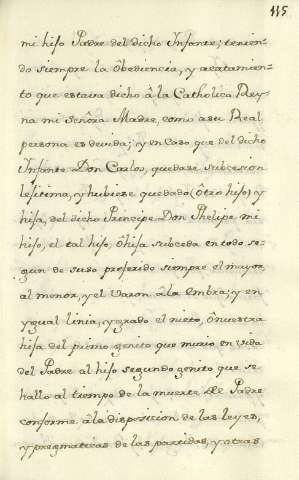 115
mi hijo Padre del dicho Infante; tenien-
do siempre la obediencia, y acatamien-
to que estava dicho â la Catholica Rey-
na mi Señôra Madre, como asu Real
persona es devida; y en Caso que del dicho
Infante Don Carlos, quedare subcesion
lejitima, y hubiese quedado (Ôtro hijo) y
hija, del dicho Principe Don Phelipe mi
hijo, el tal hijo, Ôhija subceda en todo se-
gun de suso proferido siempre el mayor,
al menor, y el varon âla Embra; y en
ygual linia, y grado el nieto, ônuestra
hija del primo genito que murio en vida
del Padre al hijo segundo genito que se
hallo al tiempo de la muerte del Padre
conforme âla disposicion de las leyes,
y pregmaticas de las partidas, y otras